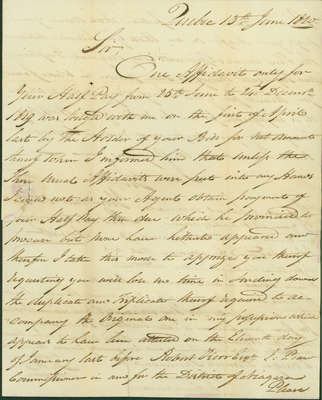 Quebec 13th June 1820
Sir
One Affidavit only for
Your Half Pay from 25th June to 24th Decemr
1819 was lodged with me on the first of April
last by the Holder of your Bills for that amount
having been I informed him that unless the
three usual Affidavits were put into my Hands
I could not as your Agent obtain payment of
your Half Pay then due which he promised to
procure but none have hitherto appeared and
therefore I take this mode to apprize you thereof
requesting you will lose no time in sending down
the duplicate and triplicate thereof required to ac
company the Original one in my possession which
appears to have been attested on the Eleventh day
of January last before Robert Esqr J. Peace
Commissioner in and for the District of Niagara
Please